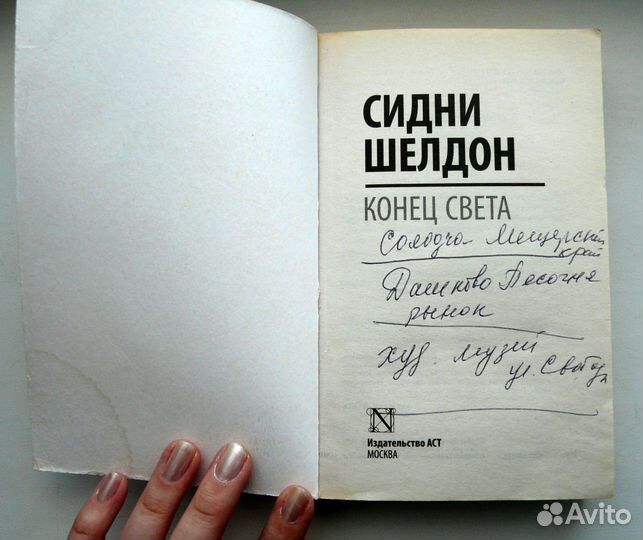 СИДНИ
ШЕЛДОН
КОНЕЦ СВЕТА
Солодча Мещерский
край
Дашково Песочня
рынок
худ. музей
ул. Свобода
N
Издательство АСТ
МОСКВА
Avito